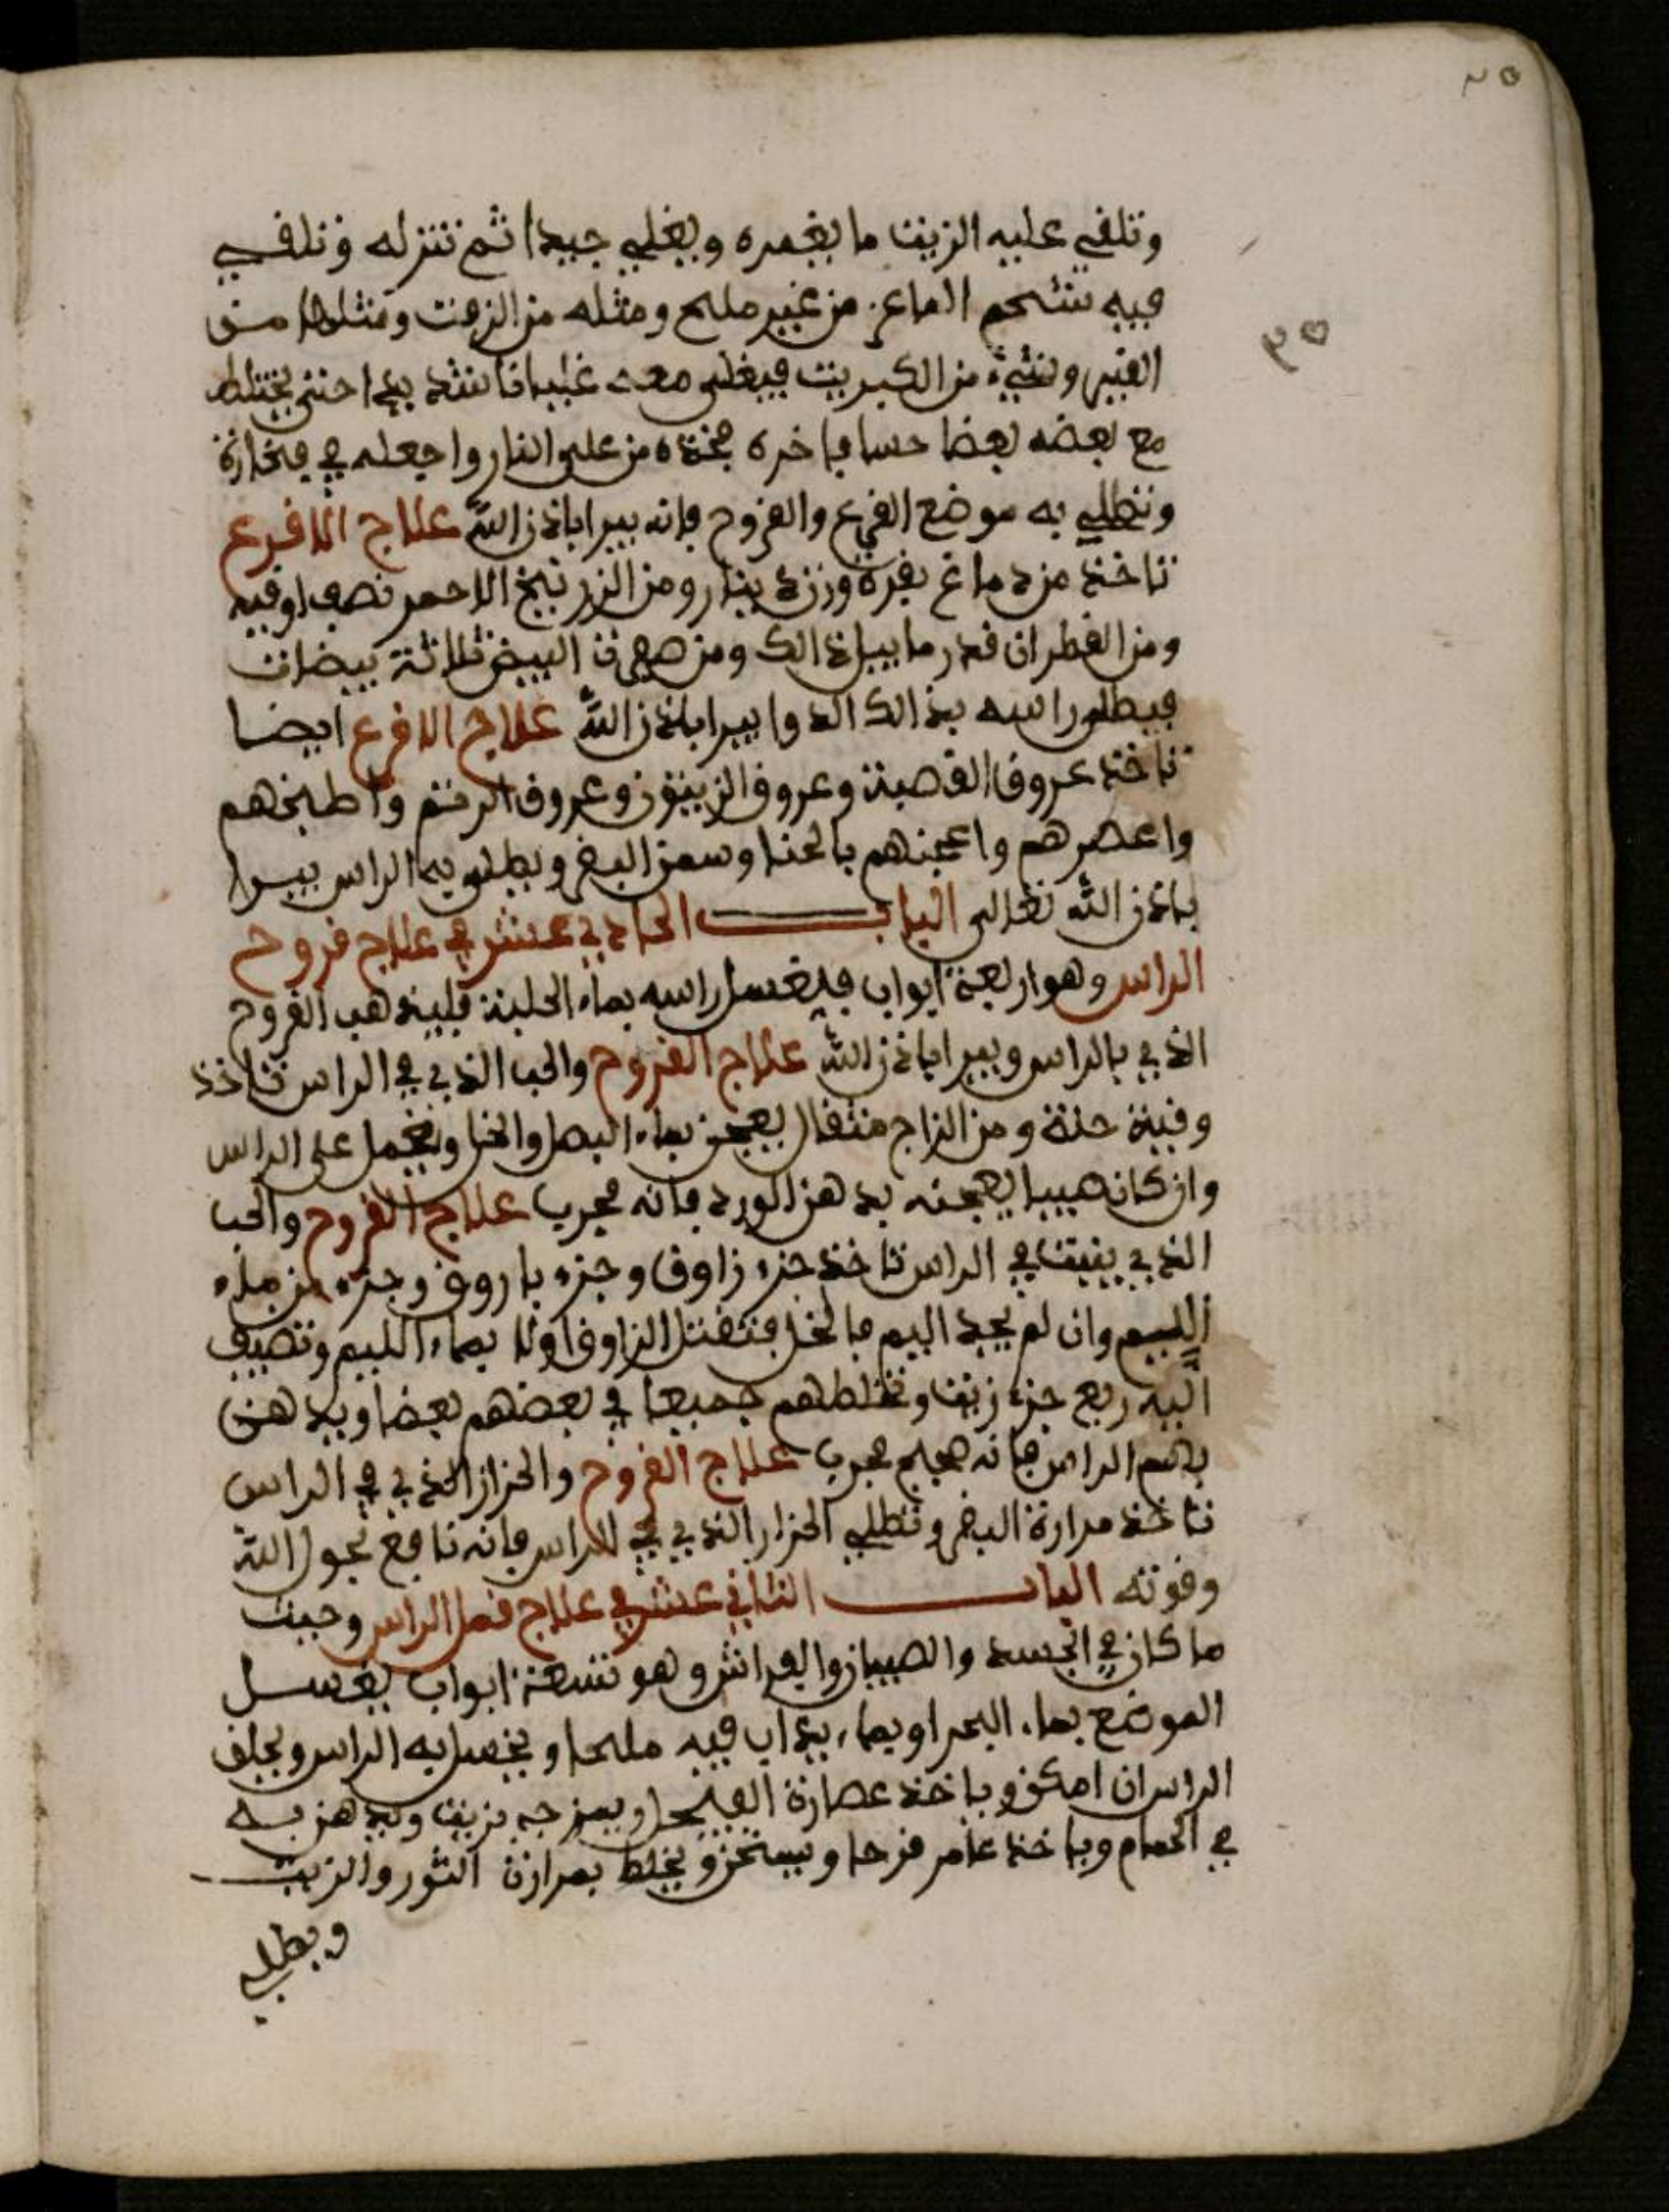 وتلقي عليه الزيت ما يغمره ويغلي جيدا ثم تنزله وتلقي
فيه شحم الماعز من غير ملح ومثله من الزفت ومثلها من
القير وشيء من الكبريت فيغلى معه غليانا شديدا حتى يختلط
مع بعضه بعضا حسا فاخره فخذه من على النار واجعله في فخارة
وتطلي به موضع القرع والقروح فإنه يبرا باذن الله علاج الاقرع
تاخذ من دماغ بقرة وزن دينار ومن الزرنيخ الاحمر نصف اوقية
ومن القطران قدر ما يبل ذالك ومن صفرت البيض ثلاثة بيضات
فيطلى راسه بذالك الدوا يبرا باذن الله علاج الاقرع ايضا
تاخذ عروق القصبة وعروق الزيتون وعروق الرتم واطبخهم
واعصرهم واعجنهم بالحنا وسمن البقر ويطلى به الراس يبرا
باذن الله تعالى الباب الحادي عشر في علاج قروح
الراس وهو اربعة ابواب فليغسل راسه بماء الحلبة فليذهب القروح
الذي بالراس ويبرا باذن الله علاج القروح والحب الذي في الراس تاخذ
وقية حنة ومن الزاج مثقال يعجن بماء البصل والخل ويحمل على الراس
وان كان صبيا يعجنه بدهن الورد فانه مجرب علاج القروح والحب
الذي ينبت في الراس تاخذ جزء زاوق وجزء باروق وجزء من ماء
الليم وان لم يجد اليم فالخل فتقتل الزاوق اولا بماء الليم وتضيف
اليه ربع جزء زيت وتخلطهم جميعا في بعضهم بعضا ويدهن
بهم الراس فانه صحيح مجرب علاج القروح والحزاز الذي في الراس
تاخذ مرارة البقر وتطلي الحزاز الذي في الراس فانه نافع بحول الله
وقوته الباب الثاني عشر في علاج قمل الراس وحيث
ما كان في الجسد والصيبان والفراش وهو تسعة ابواب يغسل
الموضع بماء البحر او بماء يذاب فيه ملحا ويغسل به الراس ويحلق
الراس ان امكن وياخذ عصارة الفيجل ويمزجه بزيت ويدهن به
في الحمام وياخذ عافر قرحا ويسحق ويخلط بمرارة الثور والزيت
ويطلى